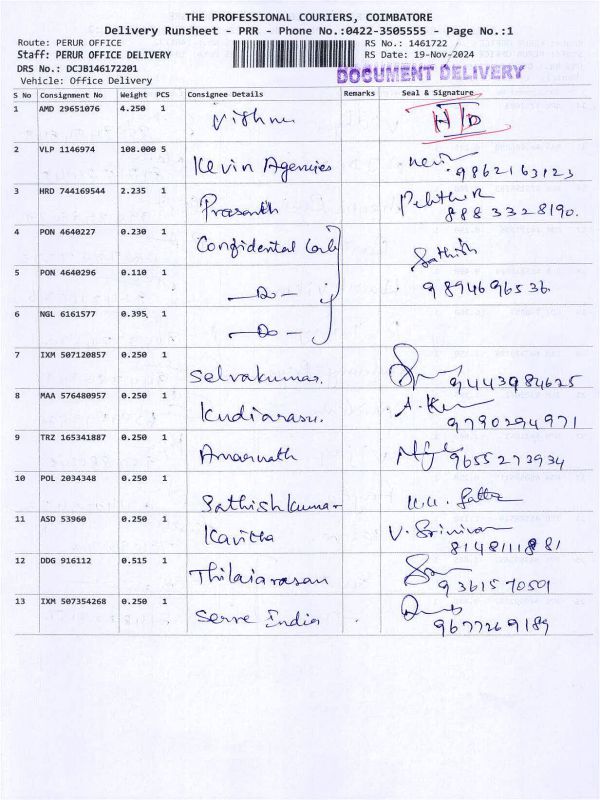 THE PROFESSIONAL COURIERS, COIMBATORE
Delivery Runsheet - PRR - Phone No.:0422-3505555 - Page No.:1
Route: PERUR OFFICE RS No.: 1461722
Staff: PERUR OFFICE DELIVERY RS Date: 19-Nov-2024
DRS No.: DCJB146172201 DOCUMENT DELIVERY
Vehicle: Office Delivery
S No Consignment No Weight PCS Consignee Details Remarks Seal & Signature
1 AMD 29651076 4.250 1 Vishnu
2 VLP 1146974 108.000 5 Kevin Agencies 9862163123
3 HRD 744169544 2.235 1 Prasanth 8883328190.
4 PON 4640227 0.230 1 Confidental Sathish
5 PON 4640296 0.110 1 - Do - 9894696536
6 NGL 6161577 0.395 1 - Do -
7 IXM 507120857 0.250 1 Selvakumar. 9443984625
8 MAA 576480957 0.250 1 Kudiarasu. 9790294971
9 TRZ 165341887 0.250 1 Amarnath 9655273934
10 POL 2034348 0.250 1 Sathishkumar
11 ASD 53960 0.250 1 Kavitha V. Srinivasan
12 DDG 916112 0.515 1 Thilaiarasan 9361570501
13 IXM 507354268 0.250 1 Serve India 9677269189